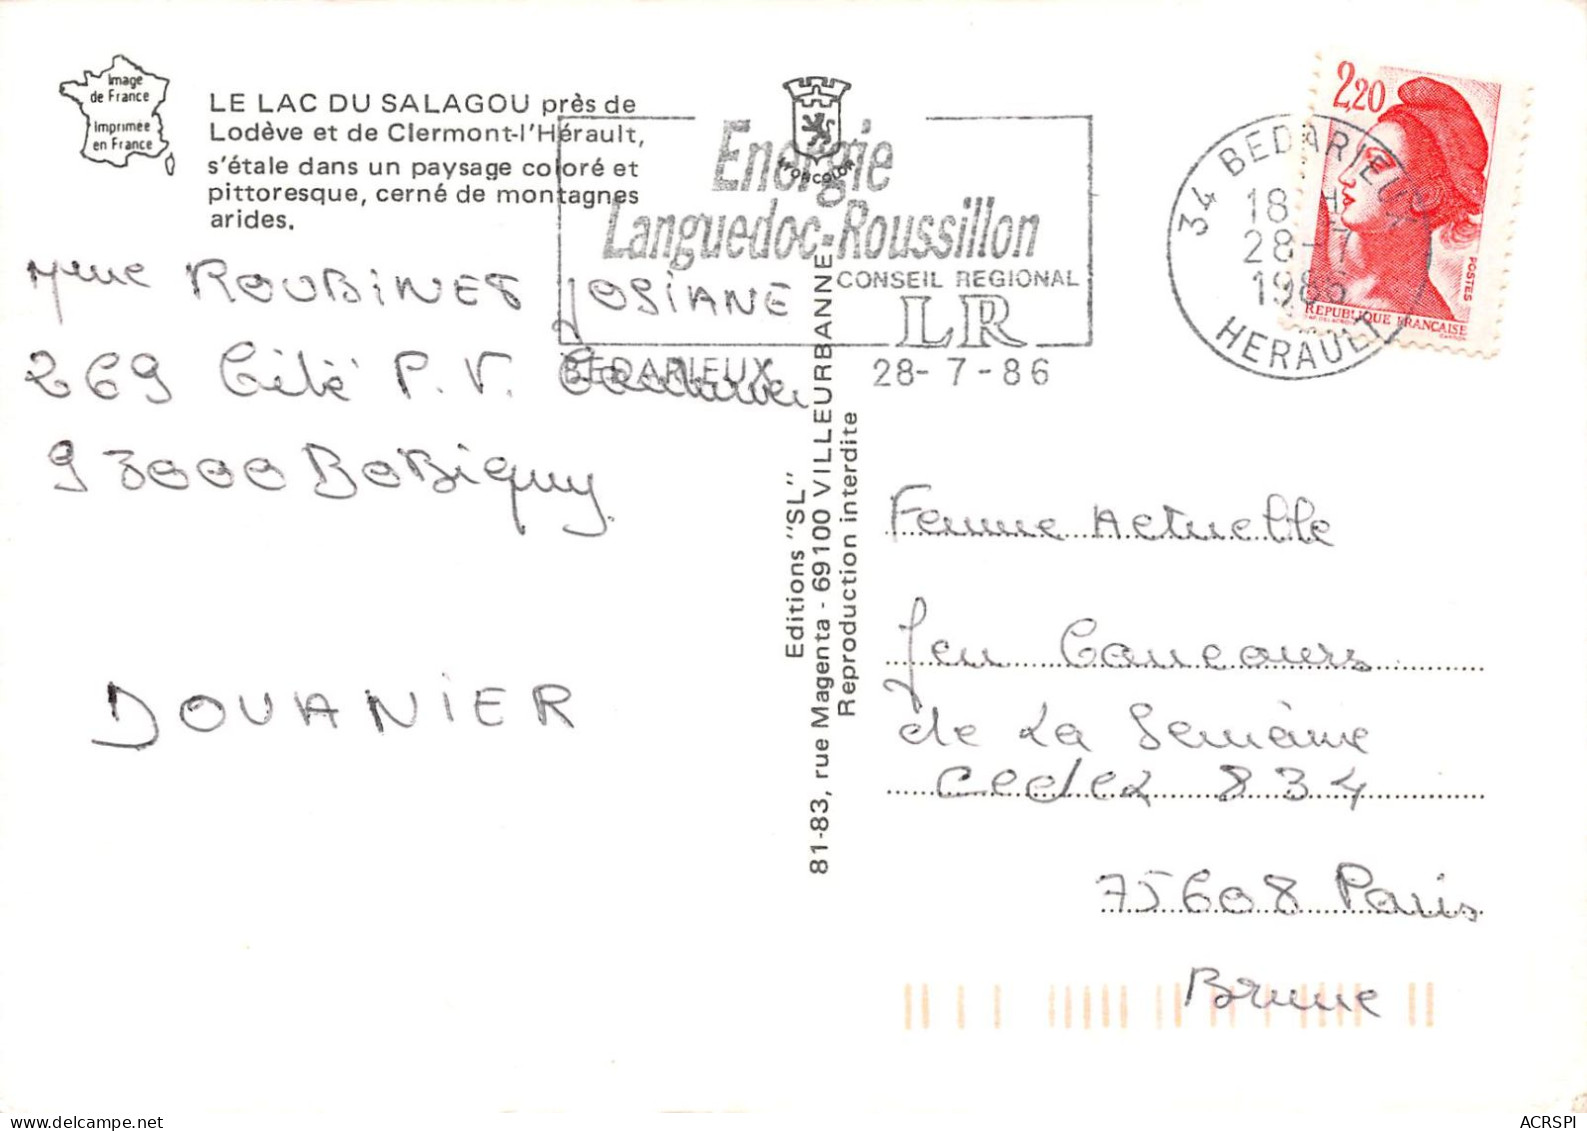 Image
de France
Imprimée
en France
LE LAC DU SALAGOU près de
Lodève et de Clermont-l'Hérault,
s'étale dans un paysage coloré et
pittoresque, cerné de montagnes
arides.
Energie
Languedoc-Roussillon
CONSEIL REGIONAL
LR
BEDARIEUX 28-7-86
34 BEDARIEUX
18 H
28-7
1986
HERAULT
2,20
POSTES
REPUBLIQUE FRANCAISE
Mme ROUBINET JOSIANE
269 Cité P.V.
93000 BoBigny.
DOUANIER
Editions "SL"
81-83, rue Magenta - 69100 VILLEURBANNE
Reproduction interdite
Femme Actuelle
Jeu Concours
de La Semaine
cedex 834
75608 Paris
Brune
ACRSPI